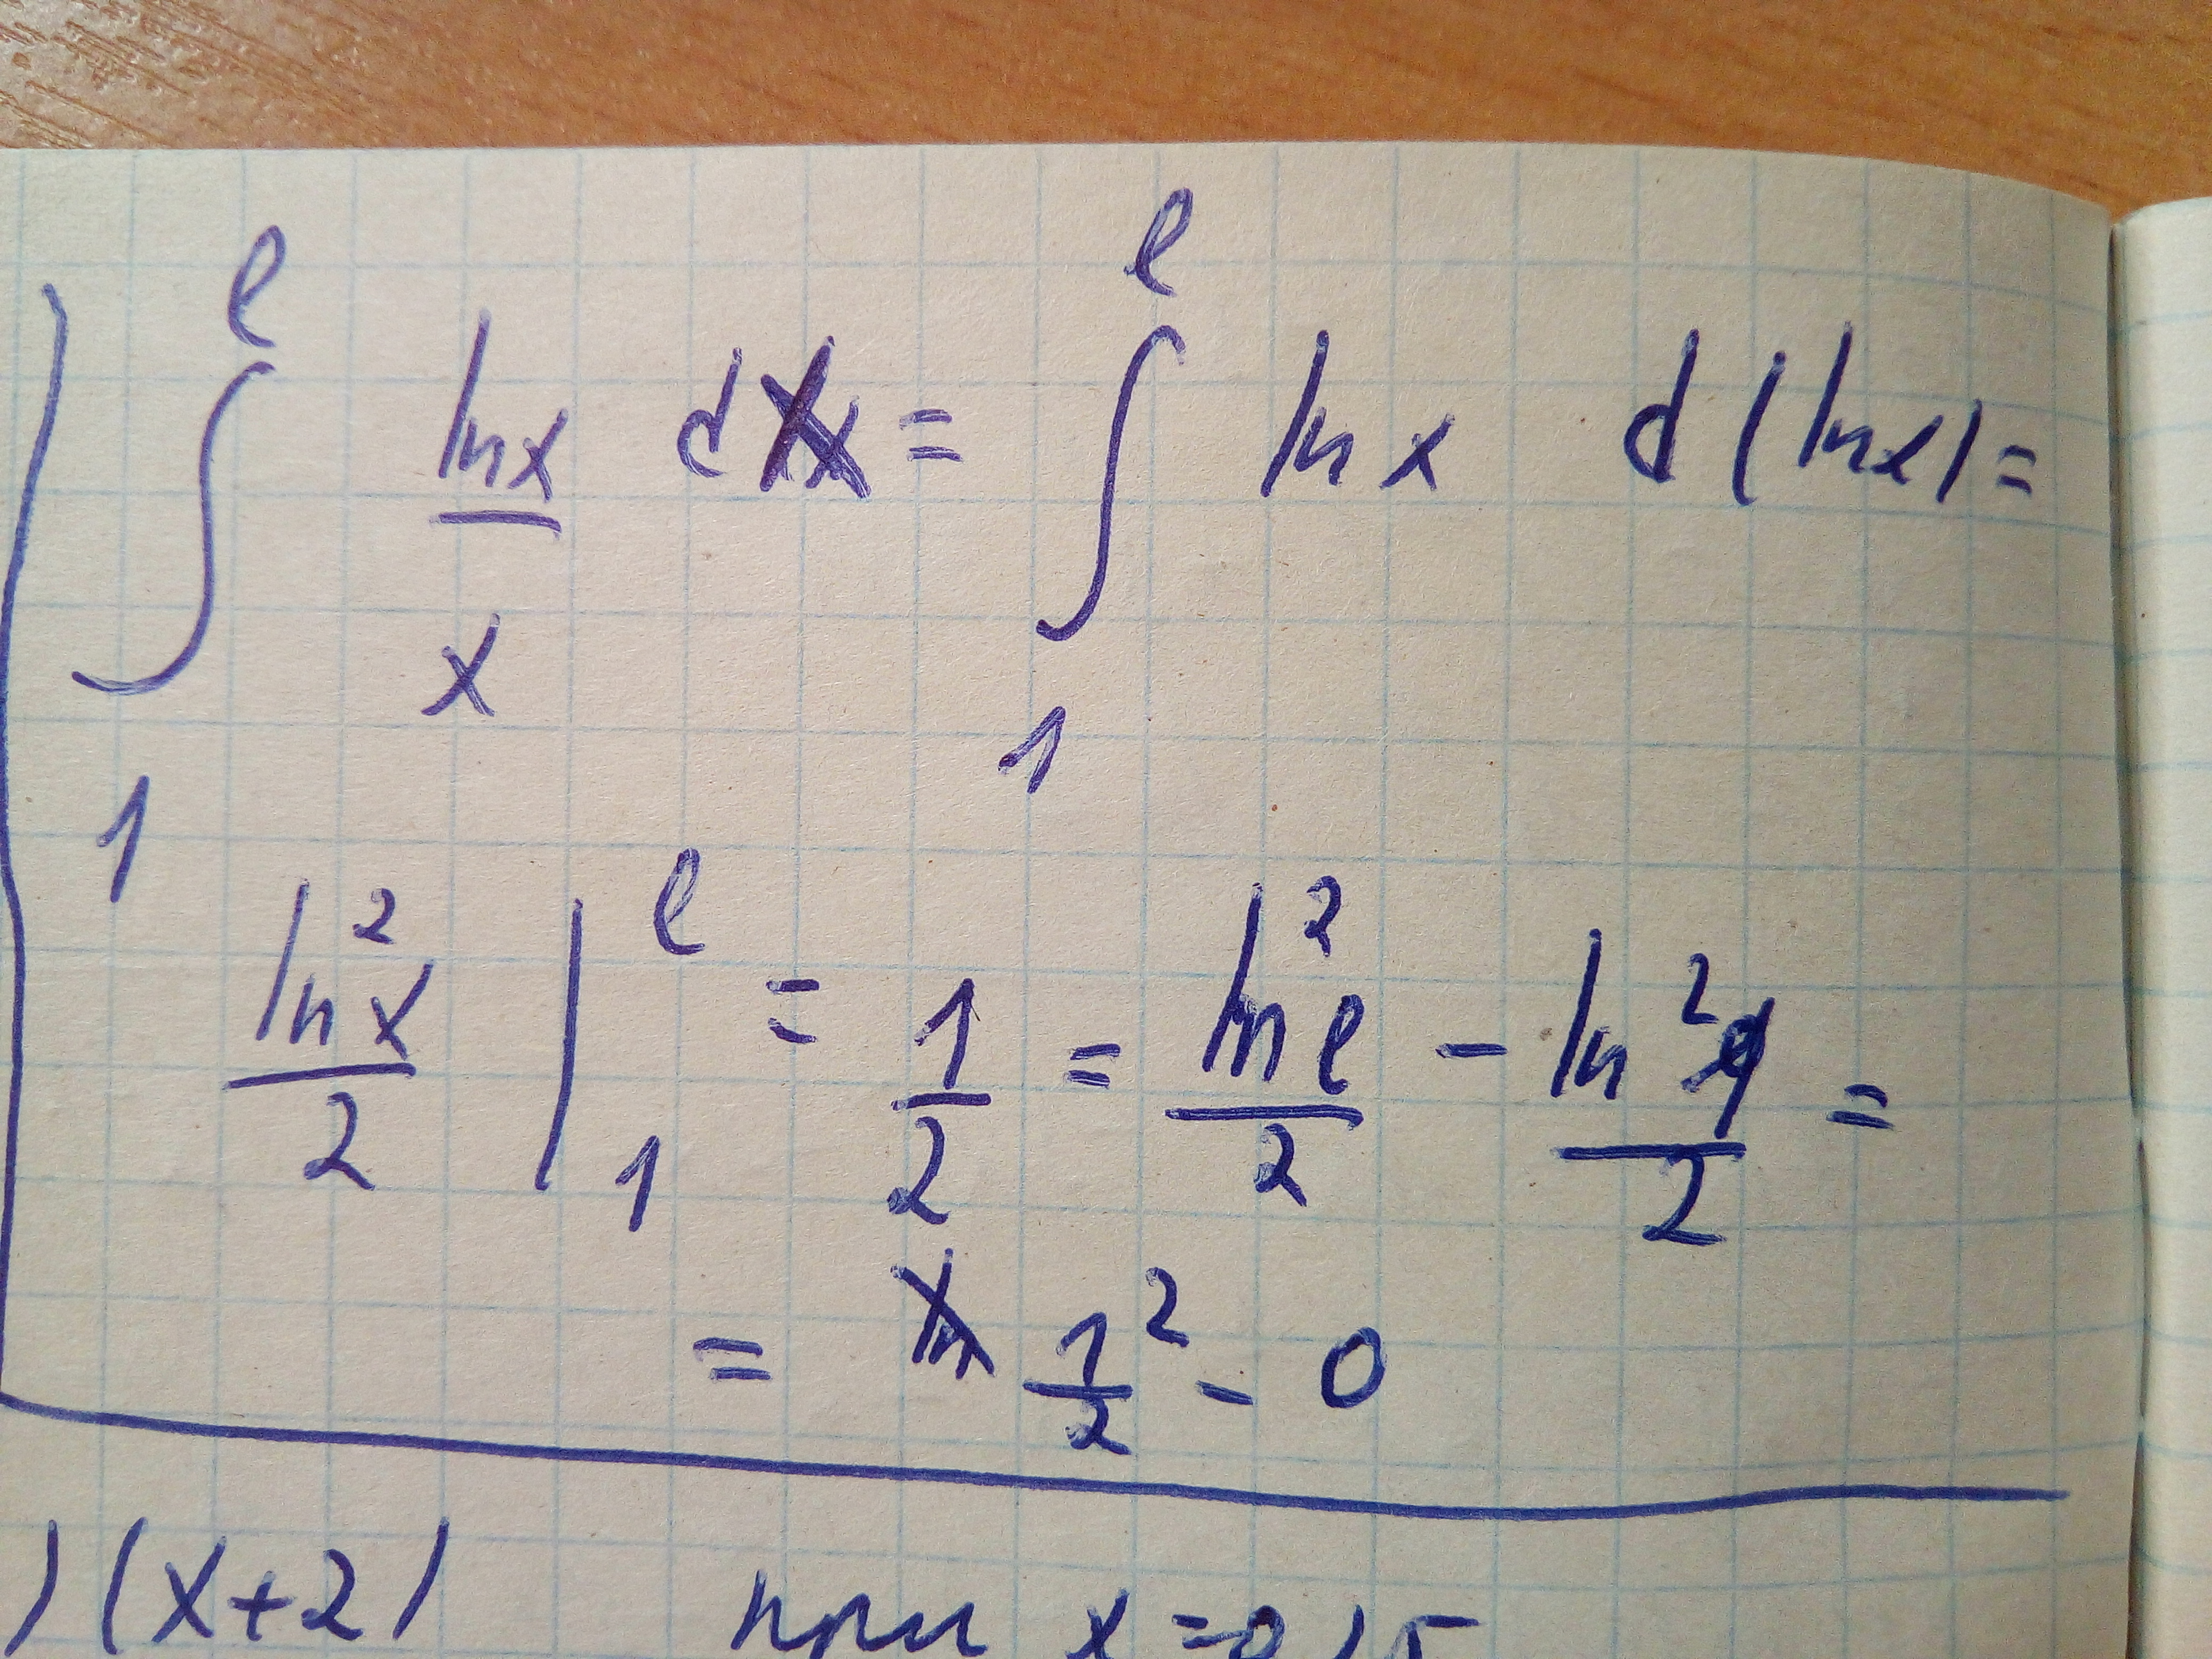 ∫₁ᵉ ln x / x dx = ∫₁ᵉ ln x d(ln x) =
ln² x / 2 |₁ᵉ = 1/2 = ln² e / 2 - ln² 1 / 2 =
= 1²/2 - 0
)(x+2) при x = 0,5